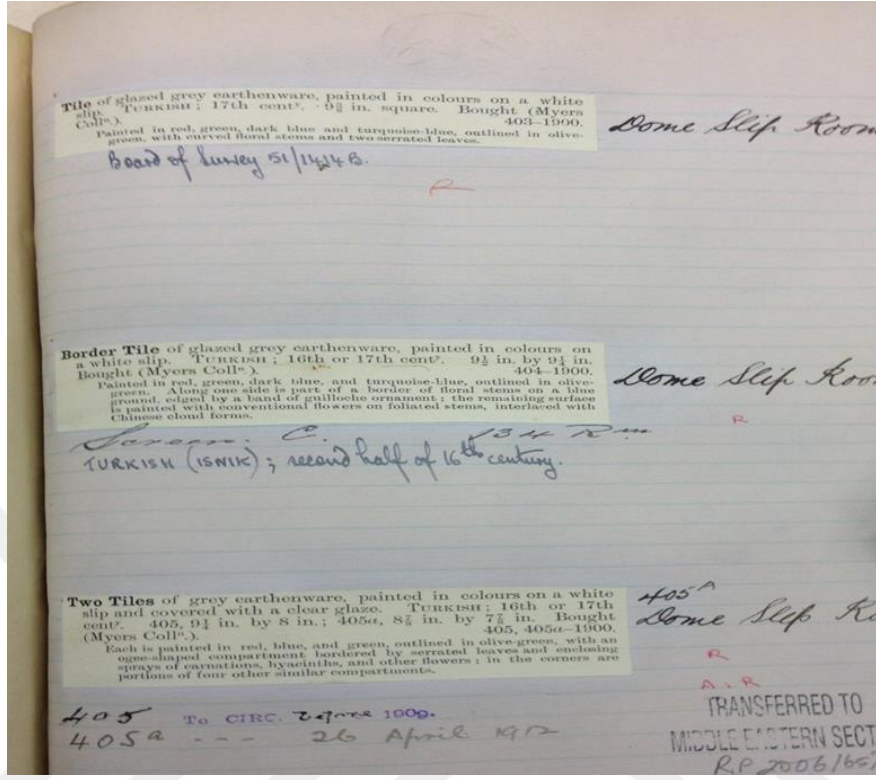 Tile of glazed grey earthenware, painted in colours on a white
slip. TURKISH; 17th centy. 9⅜ in. square. Bought (Myers
Colln.). 403–1900.
Painted in red, green, dark blue and turquoise-blue, outlined in olive-
green, with curved floral stems and two serrated leaves.
Dome Slip Room
Board of Survey 51/1414B.
R
Border Tile of glazed grey earthenware, painted in colours on
a white slip. TURKISH; 16th or 17th centy. 9½ in. by 9¼ in.
Bought (Myers Colln.). 404–1900.
Painted in red, green, dark blue, and turquoise-blue, outlined in olive-
green. Along one side is part of a border of floral stems on a blue
ground, edged by a band of guilloche ornament; the remaining surface
is painted with conventional flowers on foliated stems, interlaced with
Chinese cloud forms.
Dome Slip Roo
R
Screen. C. 134 Rm
TURKISH (ISNIK); second half of 16th century.
Two Tiles of grey earthenware, painted in colours on a white
slip and covered with a clear glaze. TURKISH; 16th or 17th
centy. 405, 9¼ in. by 8 in.; 405a, 8⅞ in. by 7⅞ in. Bought
(Myers Colln.). 405, 405a–1900.
Each is painted in red, blue, and green, outlined in olive-green, with an
ogee-shaped compartment bordered by serrated leaves and enclosing
sprays of carnations, hyacinths, and other flowers; in the corners are
portions of four other similar compartments.
405A
Dome Slip Ro
R
A. R
405 To CIRC. before 1909.
405a - - - 26 April 1912
TRANSFERRED TO
MIDDLE EASTERN SECT
RP 2006/65